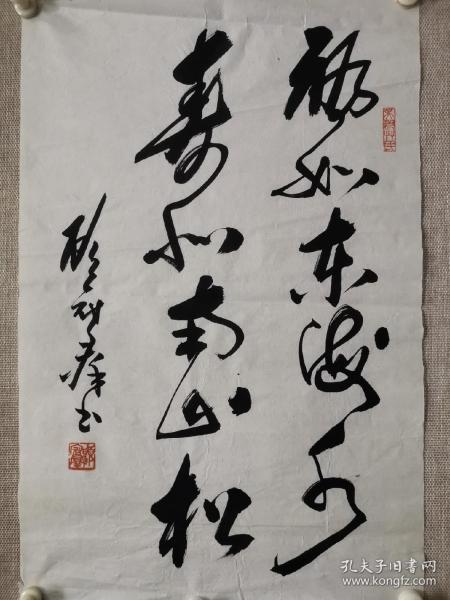 福如东海水
寿似南山松
书
孔夫子旧书网
www.kongfz.com